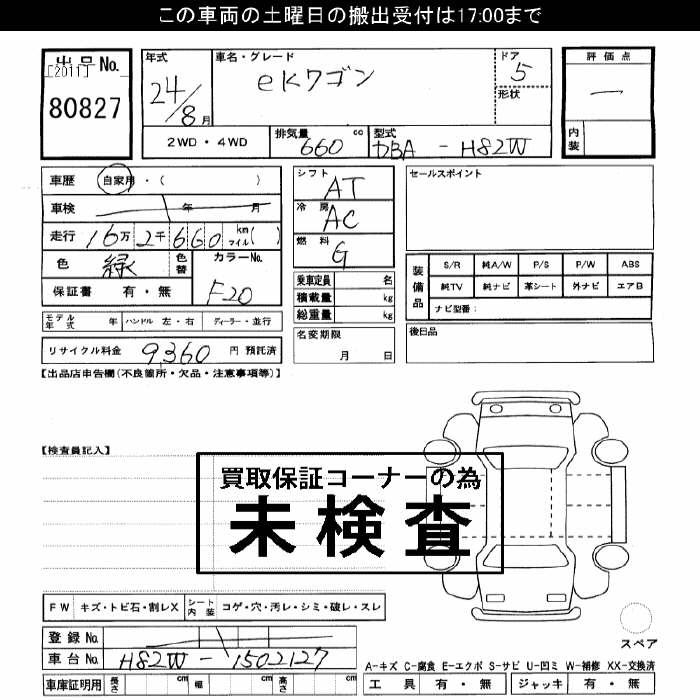 この車両の土曜日の搬出受付は17:00まで
出品No.
[2011]
80827
年式
24/8月
車名・グレード
eKワゴン
ドア
5
形状
2WD・4WD
排気量
660 cc
型式
DBA - H82W
評価点
一
内装
車歴 自家用・( )
車検 年 月
走行 16万2千660 km マイル( )
色 緑 色替
カラーNo.
F20
保証書 有・無
モデル年式 年 ハンドル 左・右 ディーラー・並行
リサイクル料金 9,360 円 預託済
シフト
AT
冷房
AC
燃料
G
乗車定員 名
積載量 kg
総重量 kg
名変期限
月 日
セールスポイント
装備品
S/R 純A/W P/S P/W ABS
純TV 純ナビ 革シート 外ナビ エアB
ナビ型番:
後日品
【出品店申告欄(不良箇所・欠品・注意事項等)】
【検査員記入】
買取保証コーナーの為
未検査
FW キズ・トビ石・割レX シート内装 コゲ・穴・汚レ・シミ・破レ・スレ
登録No.
車台No. H82W - 1502127
車庫証明用 長さ cm 幅 cm 高さ cm
スペア
A-キズ C-腐食 E-エクボ S-サビ U-凹ミ W-補修 XX-交換済
工具 有・無 ジャッキ 有・無